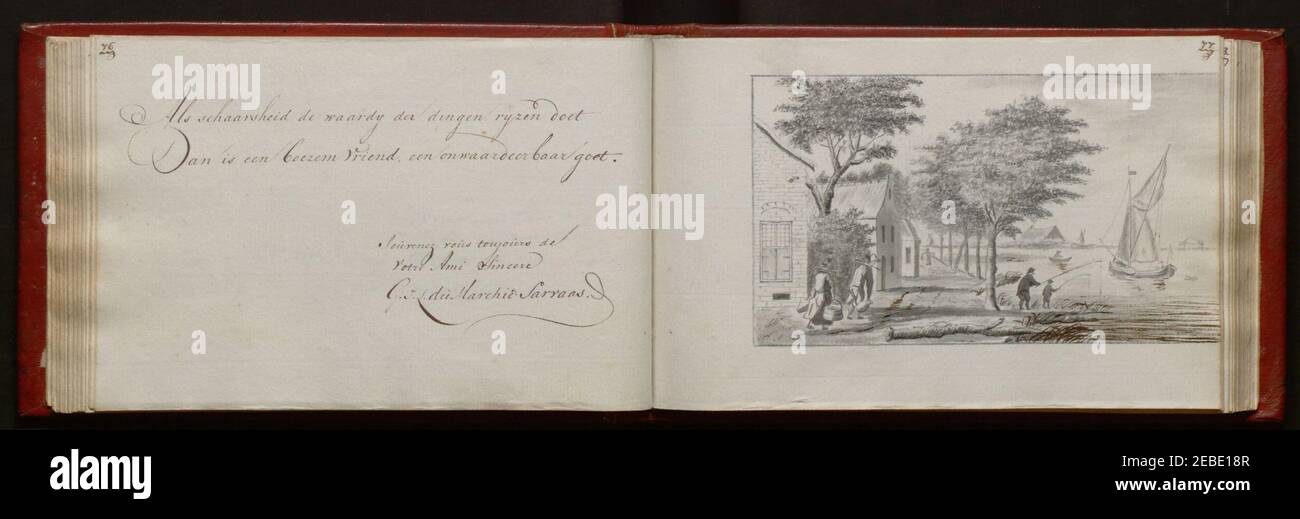 76
Als schaarsheid de waardy der dingen ryzen doet
Dan is een boezem Vriend, een onwaardeerbaar goet.
Souvenez vous toujours de
Votre Ami Sincere
du Marchie Sarvaas
77
alamy
Image ID: 2EBE18R
www.alamy.com